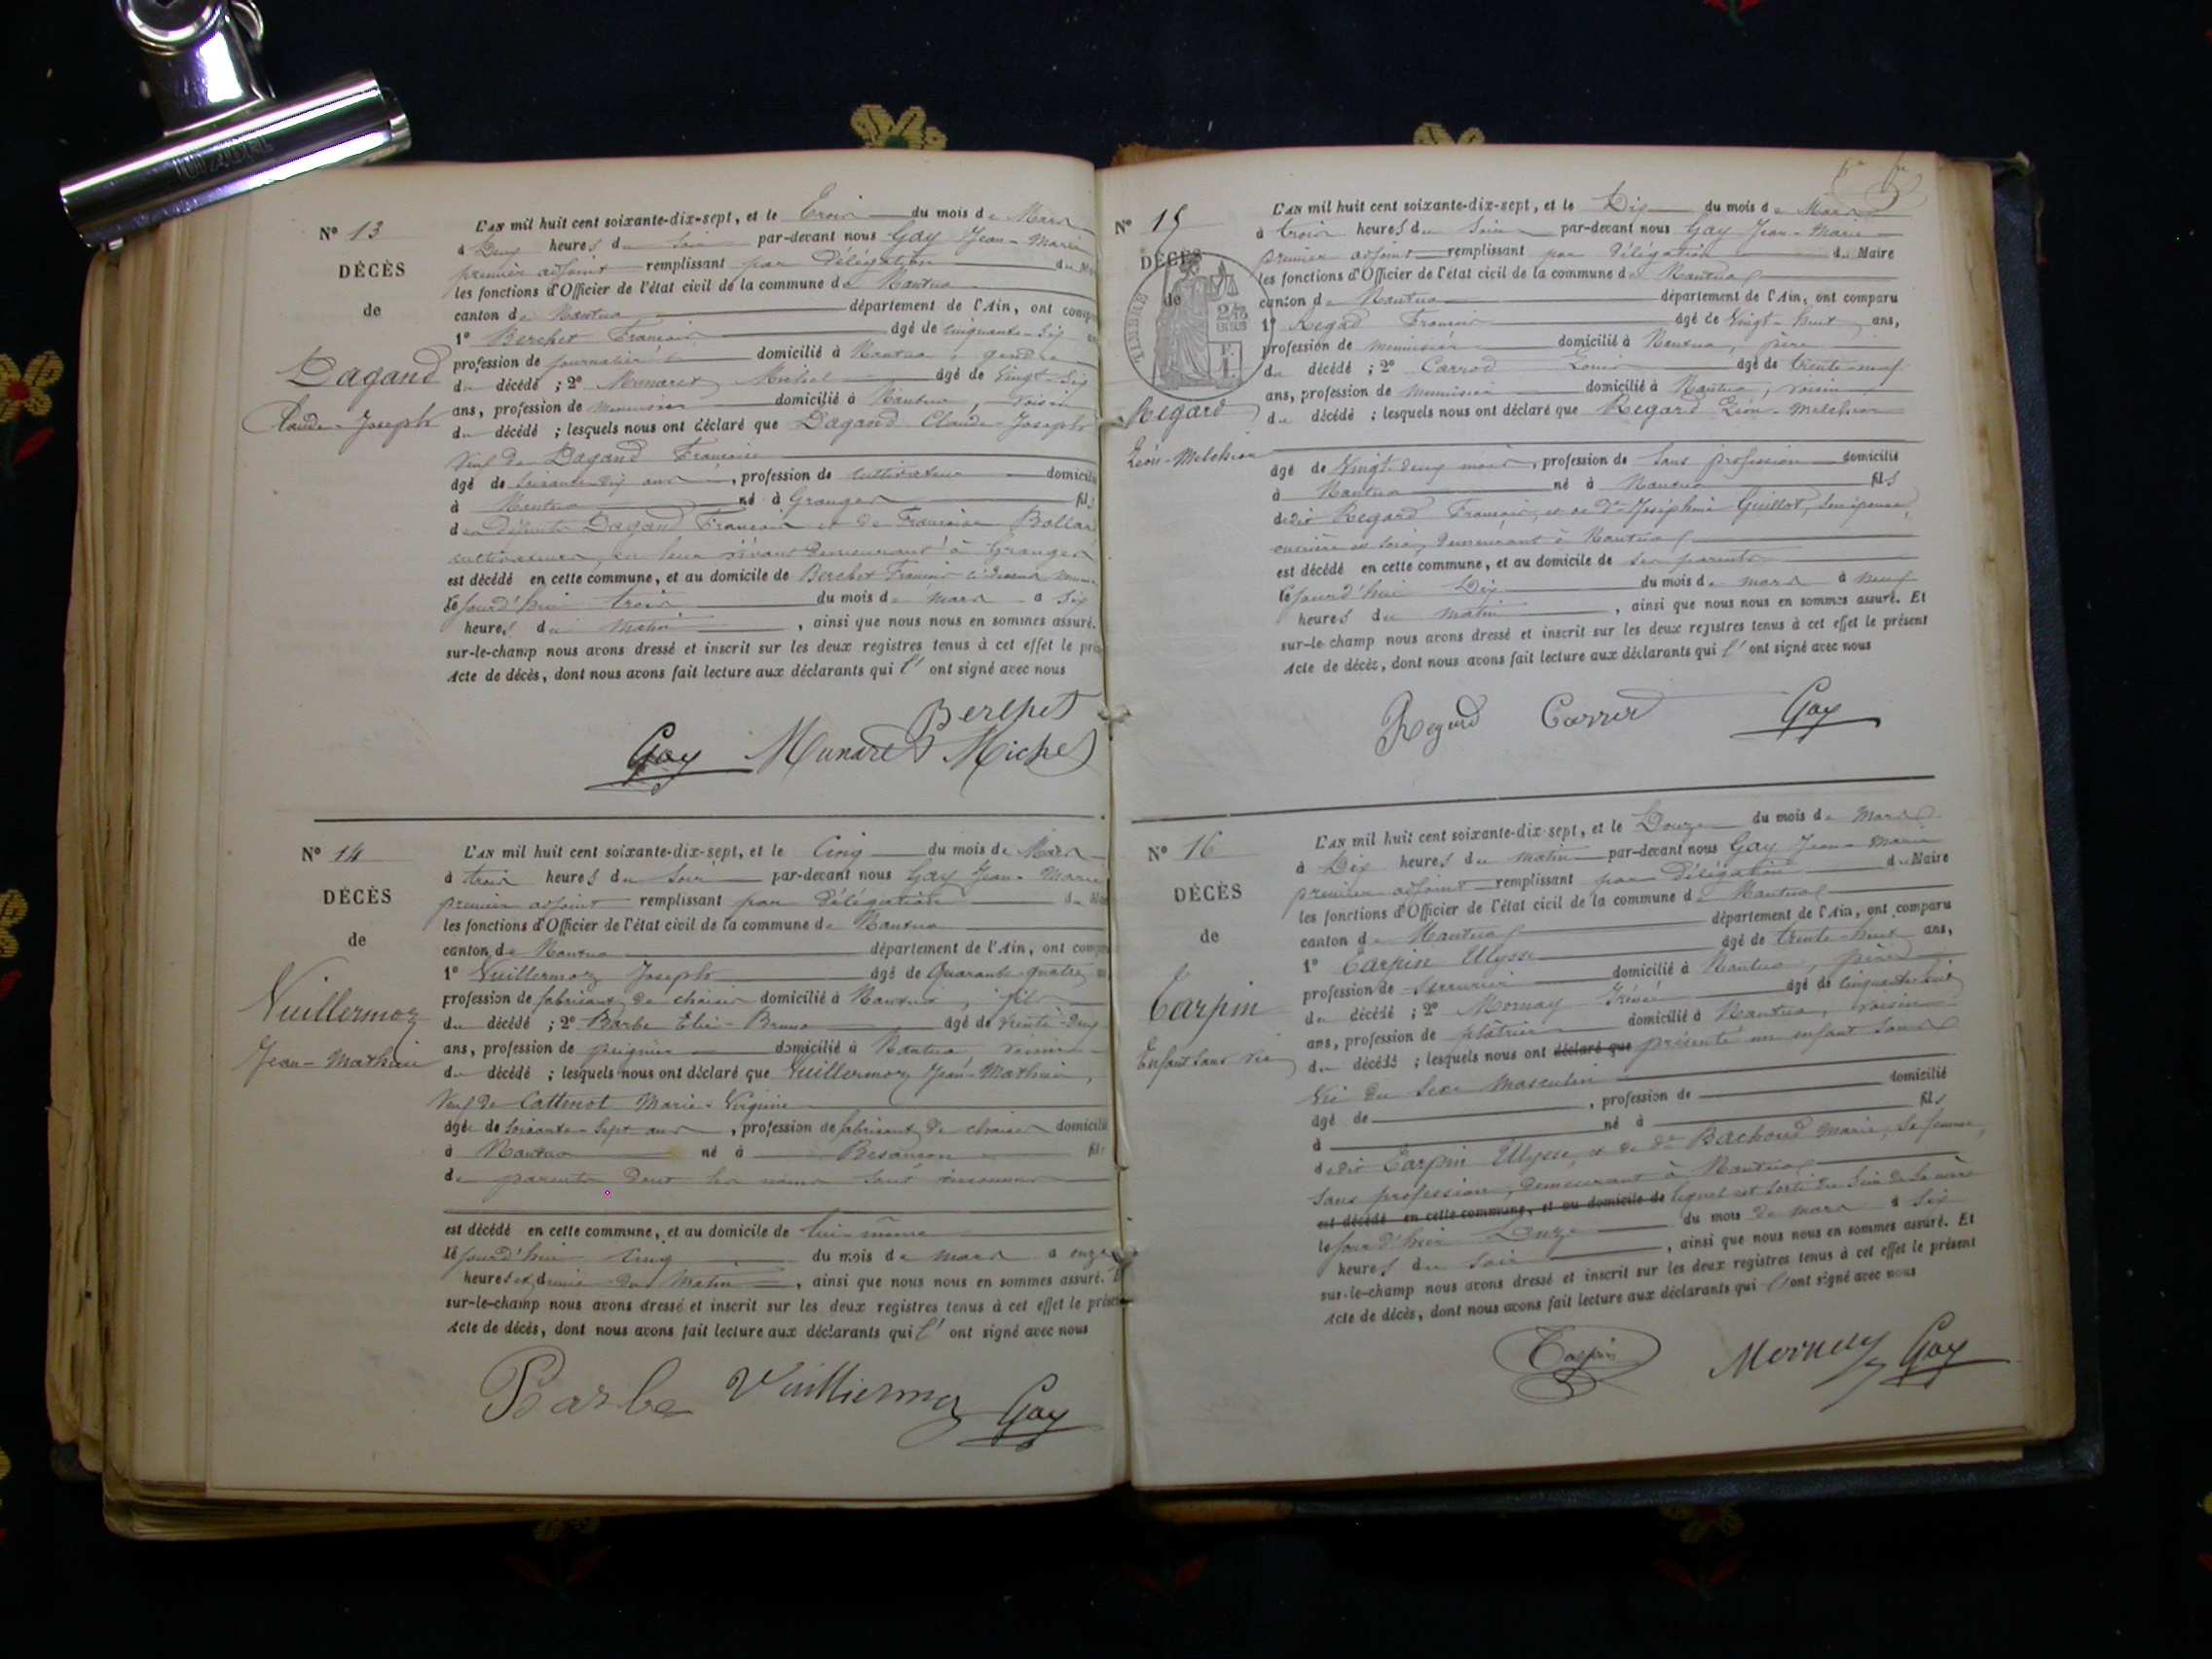 N° 13
DÉCÈS
de
Dagand
Claude-Joseph
L'AN mil huit cent soixante-dix-sept, et le Trois du mois de Mars
à Deux heures du Soir par-devant nous Gay Jean-Marie
premier adjoint remplissant par Délégation du
les fonctions d'Officier de l'état civil de la commune de Nantua
canton de Nantua département de l'Ain, ont
1° Berchet François âgé de cinquante-six
profession de journalier domicilié à Nantua, gendre
du décédé ; 2° Munaret Michel âgé de Vingt-Six
ans, profession de menuisier domicilié à Nantua, voisin
du décédé ; lesquels nous ont déclaré que Dagand Claude-Joseph
Veuf de Dagand Françoise
âgé de soixante-dix ans, profession de cultivateur
à Nantua né à Granges fils
des Défunts Dagand François et de Françoise
cultivateurs, en leur vivant demeurant à Granges
est décédé en cette commune, et au domicile de Berchet François ci-dessus
le jourd'hui trois du mois de mars à Six
heures du Matin, ainsi que nous nous en sommes assuré.
sur-le-champ nous avons dressé et inscrit sur les deux registres tenus à cet effet le
Acte de décès, dont nous avons fait lecture aux déclarants qui l' ont signé avec nous
Berchet
Gay Munaret Michel
N° 14
DÉCÈS
de
Vuillermoz
Jean-Mathieu
L'AN mil huit cent soixante-dix-sept, et le Cinq du mois de Mars
à trois heures du Soir par-devant nous Gay Jean-Marie
premier adjoint remplissant par Délégation du
les fonctions d'Officier de l'état civil de la commune de Nantua
canton de Nantua département de l'Ain, ont
1° Vuillermoz Joseph âgé de Quarante-quatre
profession de fabricant de chaises domicilié à Nantua, fils
du décédé ; 2° Barbe Elie-Bruno âgé de trente-Deux
ans, profession de peignier domicilié à Nantua, voisin
du décédé ; lesquels nous ont déclaré que Vuillermoz Jean-Mathieu,
Veuf de Cattenot Marie-Virginie
âgé de Soixante-Sept ans, profession de fabricant de chaises
à Nantua né à Besançon fils
de parents dont les noms sont inconnus
est décédé en cette commune, et au domicile de lui-même
le jourd'hui cinq du mois de mars à onze
heures et demie du Matin, ainsi que nous nous en sommes assuré.
sur-le-champ nous avons dressé et inscrit sur les deux registres tenus à cet effet le
Acte de décès, dont nous avons fait lecture aux déclarants qui l' ont signé avec nous
Barbe Vuilliermoz Gay
N° 15
DÉCÈS
de
TIMBRE
Regard
Léon-Melchior
L'AN mil huit cent soixante-dix-sept, et le Dix du mois de Mars
à trois heures du Soir par-devant nous Gay Jean-Marie
premier adjoint remplissant par Délégation du Maire
les fonctions d'Officier de l'état civil de la commune de Nantua
canton de Nantua département de l'Ain, ont comparu
1° Regad François âgé de Vingt-huit ans,
profession de menuisier domicilié à Nantua, père
du décédé ; 2° Carrod Louis âgé de trente-neuf
ans, profession de menuisier domicilié à Nantua, voisin
du décédé ; lesquels nous ont déclaré que Regard Léon-Melchior
âgé de Vingt-deux mois, profession de Sans profession domicilié
à Nantua né à Nantua fils
dudit Regard François, et de De Joséphine Guillot, son épouse,
ouvrière en soie, demeurant à Nantua
est décédé en cette commune, et au domicile de ses parents
le jourd'hui Dix du mois de mars à neuf
heures du matin, ainsi que nous nous en sommes assuré. Et
sur-le-champ nous avons dressé et inscrit sur les deux registres tenus à cet effet le présent
Acte de décès, dont nous avons fait lecture aux déclarants qui l' ont signé avec nous
Regard Carrod Gay
N° 16
DÉCÈS
de
Tarpin
Enfant sans vie
L'AN mil huit cent soixante-dix-sept, et le Douze du mois de Mars
à Dix heures du matin par-devant nous Gay Jean-Marie
premier adjoint remplissant par Délégation du Maire
les fonctions d'Officier de l'état civil de la commune de Nantua
canton de Nantua département de l'Ain, ont comparu
1° Tarpin Ulysse âgé de trente-huit ans,
profession de Serrurier domicilié à Nantua, père
du décédé ; 2° Mornay Irénée âgé de cinquante-huit
ans, profession de plâtrier domicilié à Nantua, voisin
du décédé ; lesquels nous ont déclaré que présenté un enfant sans
vie du sexe masculin
âgé de , profession de domicilié
à né à fils
dudit Tarpin Ulysse, et de De Bachoud Marie, sa femme,
sans profession, demeurant à Nantua
est décédé en cette commune, et au domicile de lequel est sorti du sein de sa mère
le jour d'hier Onze du mois de mars à six
heures du soir, ainsi que nous nous en sommes assuré. Et
sur-le-champ nous avons dressé et inscrit sur les deux registres tenus à cet effet le présent
Acte de décès, dont nous avons fait lecture aux déclarants qui l'ont signé avec nous
Tarpin Mornay Gay